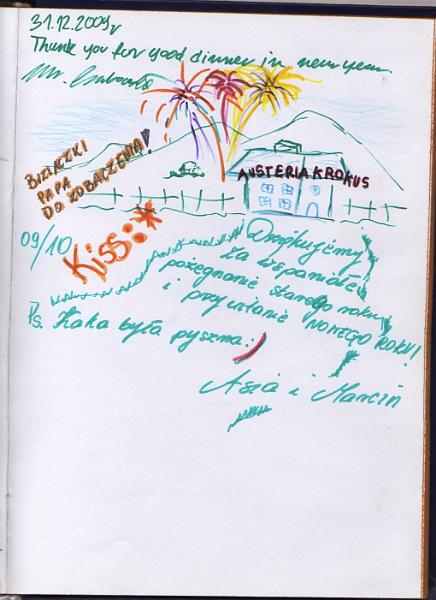 31.12.2009r
Thank you for good dinner in new year.
Mr.
BUZIACZKI
PA PA
DO ZOBACZENIA!
AUSTERIA KROKUS
09/10
Kiss:*
Dziękujemy
za wspaniałe
pożegnanie starego roku
i przywitanie NOWEGO ROKU!
Ps. Kaka była pyszna :)
Asia i Marcin